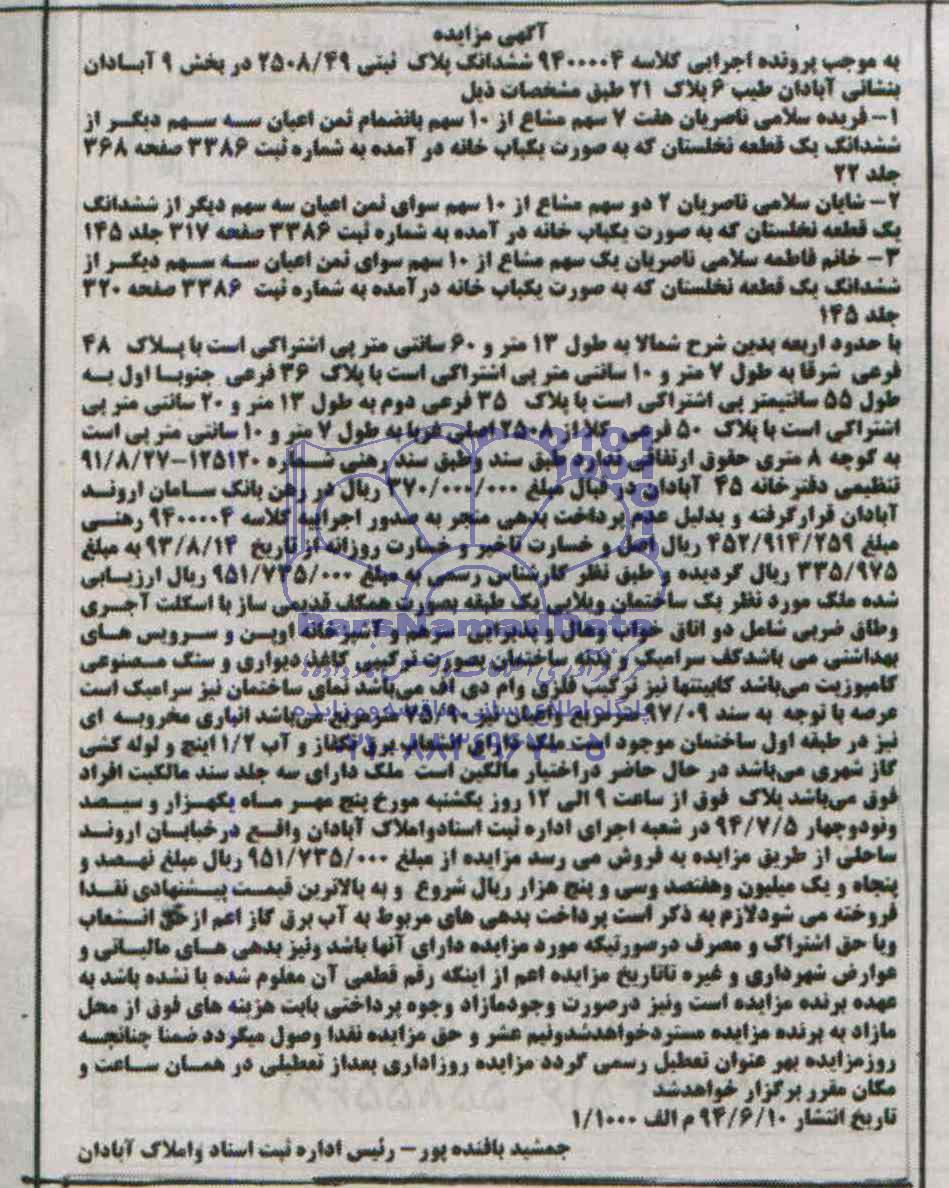 آگهی مزایده
به موجب پرونده اجرایی کلاسه ۹۴۰۰۰۰۴ ششدانگ پلاک ثبتی ۲۵۰۸/۴۹ در بخش ۹ آبادان
بنشانی آبادان طیب ۶ پلاک ۲۱ طبق مشخصات ذیل
۱- فریده سلامی ناصریان هفت ۷ سهم مشاع از ۱۰ سهم بانضمام ثمن اعیان سه سهم دیگر از
ششدانگ یک قطعه نخلستان که به صورت یکباب خانه در آمده به شماره ثبت ۳۳۸۶ صفحه ۳۶۸
جلد ۲۲
۲- شایان سلامی ناصریان ۲ دو سهم مشاع از ۱۰ سهم سوای ثمن اعیان سه سهم دیگر از ششدانگ
یک قطعه نخلستان که به صورت یکباب خانه در آمده به شماره ثبت ۳۳۸۶ صفحه ۳۱۷ جلد ۱۴۵
۳- خانم فاطمه سلامی ناصریان یک سهم مشاع از ۱۰ سهم سوای ثمن اعیان سه سهم دیگر از
ششدانگ یک قطعه نخلستان که به صورت یکباب خانه درآمده به شماره ثبت ۳۳۸۶ صفحه ۳۲۰
جلد ۱۴۵
با حدود اربعه بدین شرح شمالا به طول ۱۳ متر و ۶۰ سانتی متر پی اشتراکی است با پلاک ۴۸
فرعی شرقا به طول ۷ متر و ۱۰ سانتی متر پی اشتراکی است با پلاک ۳۶ فرعی جنوبا اول به
طول ۵۵ سانتیمتر پی اشتراکی است با پلاک ۳۵ فرعی دوم به طول ۱۳ متر و ۲۰ سانتی متر پی
اشتراکی است با پلاک ۵۰ فرعی کلا از ۲۵۰۸ اصلی غربا به طول ۷ متر و ۱۰ سانتی متر پی است
به کوچه ۸ متری حقوق ارتفاقی ندارد طبق سند وطبق سند رهنی شماره ۱۲۵۱۲۰-۹۱/۸/۲۷
تنظیمی دفترخانه ۴۵ آبادان در قبال مبلغ ۳۷۰/۰۰۰/۰۰۰ ریال در رهن بانک سامان اروند
آبادان قرارگرفته و بدلیل عدم پرداخت بدهی منجر به صدور اجراییه کلاسه ۹۴۰۰۰۰۴ رهنی
مبلغ ۴۵۲/۹۱۴/۲۵۹ ریال اصل و خسارت تاخیر و خسارت روزانه از تاریخ ۹۳/۸/۱۴ به مبلغ
۳۳۵/۹۷۵ ریال گردیده و طبق نظر کارشناس رسمی به مبلغ ۹۵۱/۷۳۵/۰۰۰ ریال ارزیابی
شده ملک مورد نظر یک ساختمان ویلایی یک طبقه بصورت همکف قدیمی ساز با اسکلت آجری
وطاق ضربی شامل دو اتاق خواب وهال و پذیرایی سرهم و آشپزخانه اوپن و سرویس های
بهداشتی می باشدکف سرامیک و بدنه ساختمان بصورت ترکیبی کاغذدیواری و سنگ مصنوعی
کامپوزیت می‌باشد کابینتها نیز ترکیب فلزی وام دی اف می‌باشد نمای ساختمان نیز سرامیک است
عرصه با توجه به سند ۹۷/۰۹ مترمربع واعیان نیز ۷۵/۹۰ مترمربع می‌باشد انباری مخروبه ای
نیز در طبقه اول ساختمان موجود است ملک دارای انشعاب برق تکفاز و آب ۱/۲ اینچ و لوله کشی
گاز شهری می‌باشد در حال حاضر دراختیار مالکین است ملک دارای سه جلد سند مالکیت افراد
فوق می‌باشد پلاک فوق از ساعت ۹ الی ۱۲ روز یکشنبه مورخ پنج مهر ماه یکهزار و سیصد
ونودوچهار ۹۴/۷/۵ در شعبه اجرای اداره ثبت اسنادواملاک آبادان واقع درخیابان اروند
ساحلی از طریق مزایده به فروش می رسد مزایده از مبلغ ۹۵۱/۷۳۵/۰۰۰ ریال مبلغ نهصد و
پنجاه و یک میلیون وهفتصد وسی و پنج هزار ریال شروع و به بالاترین قیمت پیشنهادی نقدا
فروخته می شودلازم به ذکر است پرداخت بدهی های مربوط به آب برق گاز اعم از حق انشعاب
ویا حق اشتراک و مصرف درصورتیکه مورد مزایده دارای آنها باشد ونیز بدهی های مالیاتی و
عوارض شهرداری و غیره تاتاریخ مزایده اعم از اینکه رقم قطعی آن معلوم شده یا نشده باشد به
عهده برنده مزایده است ونیز درصورت وجودمازاد وجوه پرداختی بابت هزینه های فوق از محل
مازاد به برنده مزایده مستردخواهدشدونیم عشر و حق مزایده نقدا وصول میگردد ضمنا چنانچه
روزمزایده بهر عنوان تعطیل رسمی گردد مزایده روزاداری بعداز تعطیلی در همان ساعت و
مکان مقرر برگزار خواهدشد
تاریخ انتشار ۹۴/۶/۱۰ م الف ۱/۱۰۰۰
جمشید بافنده پور - رئیس اداره ثبت اسناد واملاک آبادان
ParsNamadData
پایگاه اطلاع رسانی مناقصه و مزایده
۰۲۱-۸۸۳۴۹۶۷۰-۵